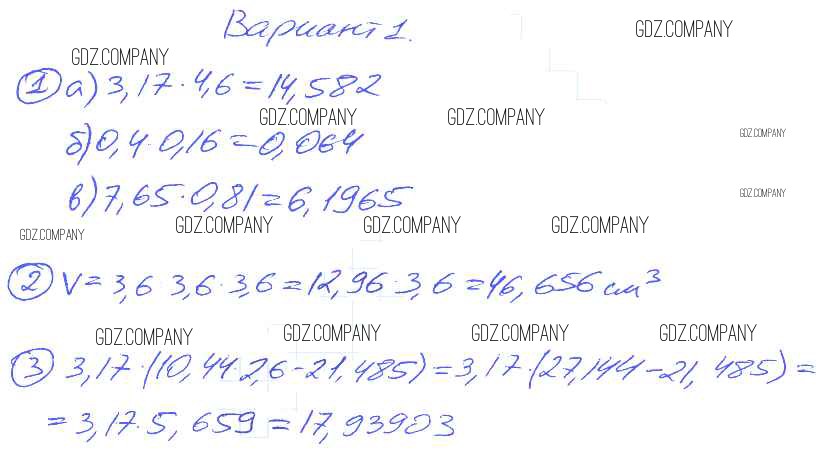 Вариант 1.
GDZ.COMPANY
GDZ.COMPANY
① а) 3,17 · 4,6 = 14,582
GDZ.COMPANY GDZ.COMPANY
GDZ.COMPANY
б) 0,4 · 0,16 = 0,064
в) 7,65 · 0,81 = 6,1965
GDZ.COMPANY
GDZ.COMPANY GDZ.COMPANY GDZ.COMPANY GDZ.COMPANY
② V = 3,6 · 3,6 · 3,6 = 12,96 · 3,6 = 46,656 см³
GDZ.COMPANY GDZ.COMPANY GDZ.COMPANY GDZ.COMPANY
③ 3,17 · (10,44 · 2,6 - 21,485) = 3,17 · (27,144 - 21,485) =
= 3,17 · 5,659 = 17,93903